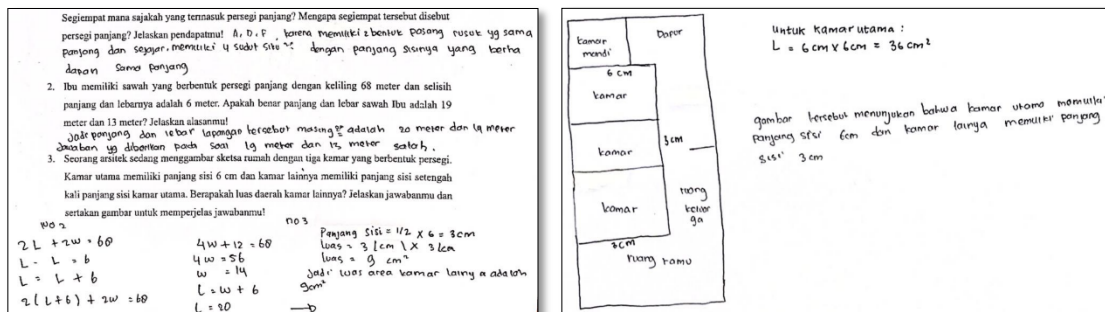 Segiempat mana sajakah yang termasuk persegi panjang? Mengapa segiempat tersebut disebut
persegi panjang? Jelaskan pendapatmu! A, D, F, karena memiliki 2 bentuk pasang rusuk yg sama
panjang dan sejajar, memiliki 4 sudut siku²: dengan panjang sisinya yang berha
dapan sama panjang
2. Ibu memiliki sawah yang berbentuk persegi panjang dengan keliling 68 meter dan selisih
panjang dan lebarnya adalah 6 meter. Apakah benar panjang dan lebar sawah Ibu adalah 19
meter dan 13 meter? Jelaskan alasanmu!
Jadi panjang dan lebar lapangan tersebut masing² adalah 20 meter dan 14 meter
Jawaban yg diberikan pada soal 19 meter dan 13 meter salah.
3. Seorang arsitek sedang menggambar sketsa rumah dengan tiga kamar yang berbentuk persegi.
Kamar utama memiliki panjang sisi 6 cm dan kamar lainnya memiliki panjang sisi setengah
kali panjang sisi kamar utama. Berapakah luas daerah kamar lainnya? Jelaskan jawabanmu dan
sertakan gambar untuk memperjelas jawabanmu!
No 2
2L + 2w = 68
L - L = 6
L = L + 6
2(L+6) + 2w = 68
4w + 12 = 68
4w = 56
w = 14
L = w + 6
L = 20
no 3
Panjang sisi = 1/2 x 6 = 3cm
luas = 3 cm x 3 cm
luas = 9 cm²
Jadi luas area kamar lainya adalah
9cm²
kamar
mandi
Dapur
6 cm
kamar
kamar
3 cm
kamar
ruang
keluar
ga
3cm
ruang tamu
Untuk kamar utama :
L = 6 cm x 6cm = 36 cm²
gambar tersebut menunjukan bahwa kamar utama memiliki
panjang sisi 6cm dan kamar lainya memiliki panjang
sisi 3 cm